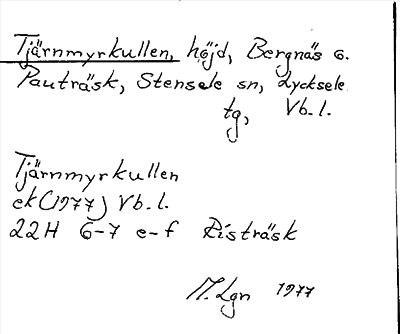 Tjärnmyrkullen, höjd, Bergnäs o.
Pauträsk, Stensele sn, Lycksele
tg, Vb. l.
Tjärnmyrkullen
ek (1977) Vb. l.
22H 6-7 e-f Risträsk
M. Lgn 1977